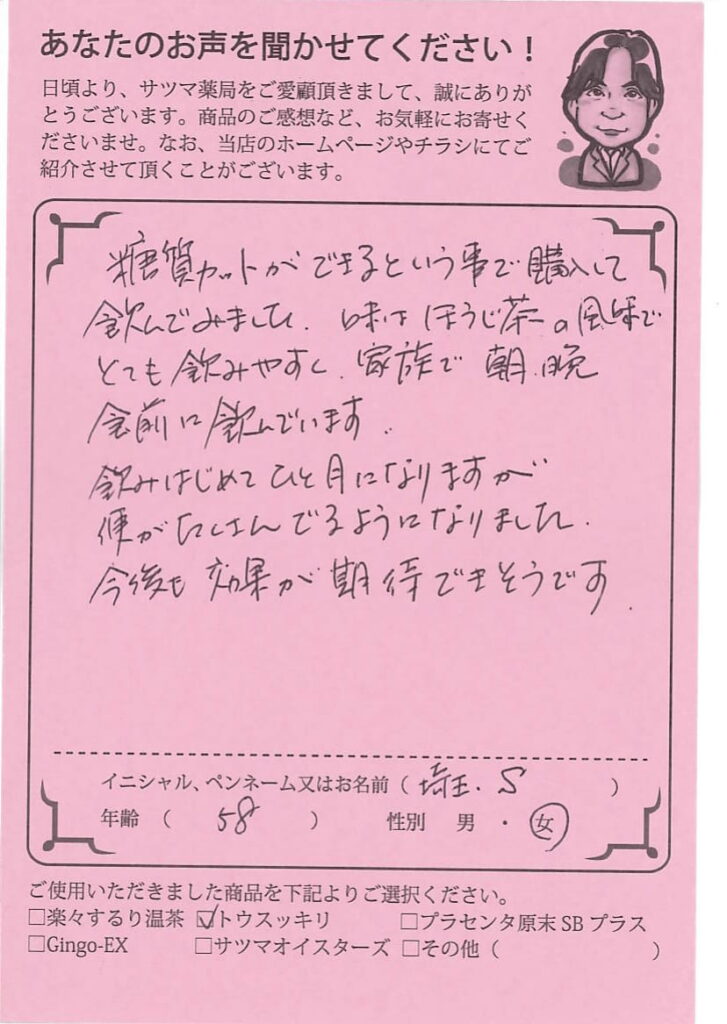 あなたのお声を聞かせてください！
日頃より、サツマ薬局をご愛顧頂きまして、誠にありが
とうございます。商品のご感想など、お気軽にお寄せく
ださいませ。なお、当店のホームページやチラシにてご
紹介させて頂くことがございます。
糖質カットができるという事で購入して
飲んでみました. 味は ほうじ茶の風味で
とても飲みやすく. 家族で 朝.晩
食前に飲んでいます.
飲みはじめて ひと月になりますが
便がたくさんでるようになりました.
今後も 効果が期待できそうです.
イニシャル、ペンネーム又はお名前（ 埼玉. S ）
年齢 （ 58 ） 性別 男 ・ 女
ご使用いただきました商品を下記よりご選択ください。
□楽々するり温茶 ☑トウスッキリ □プラセンタ原末 SB プラス
□Gingo-EX □サツマオイスターズ □その他（ ）